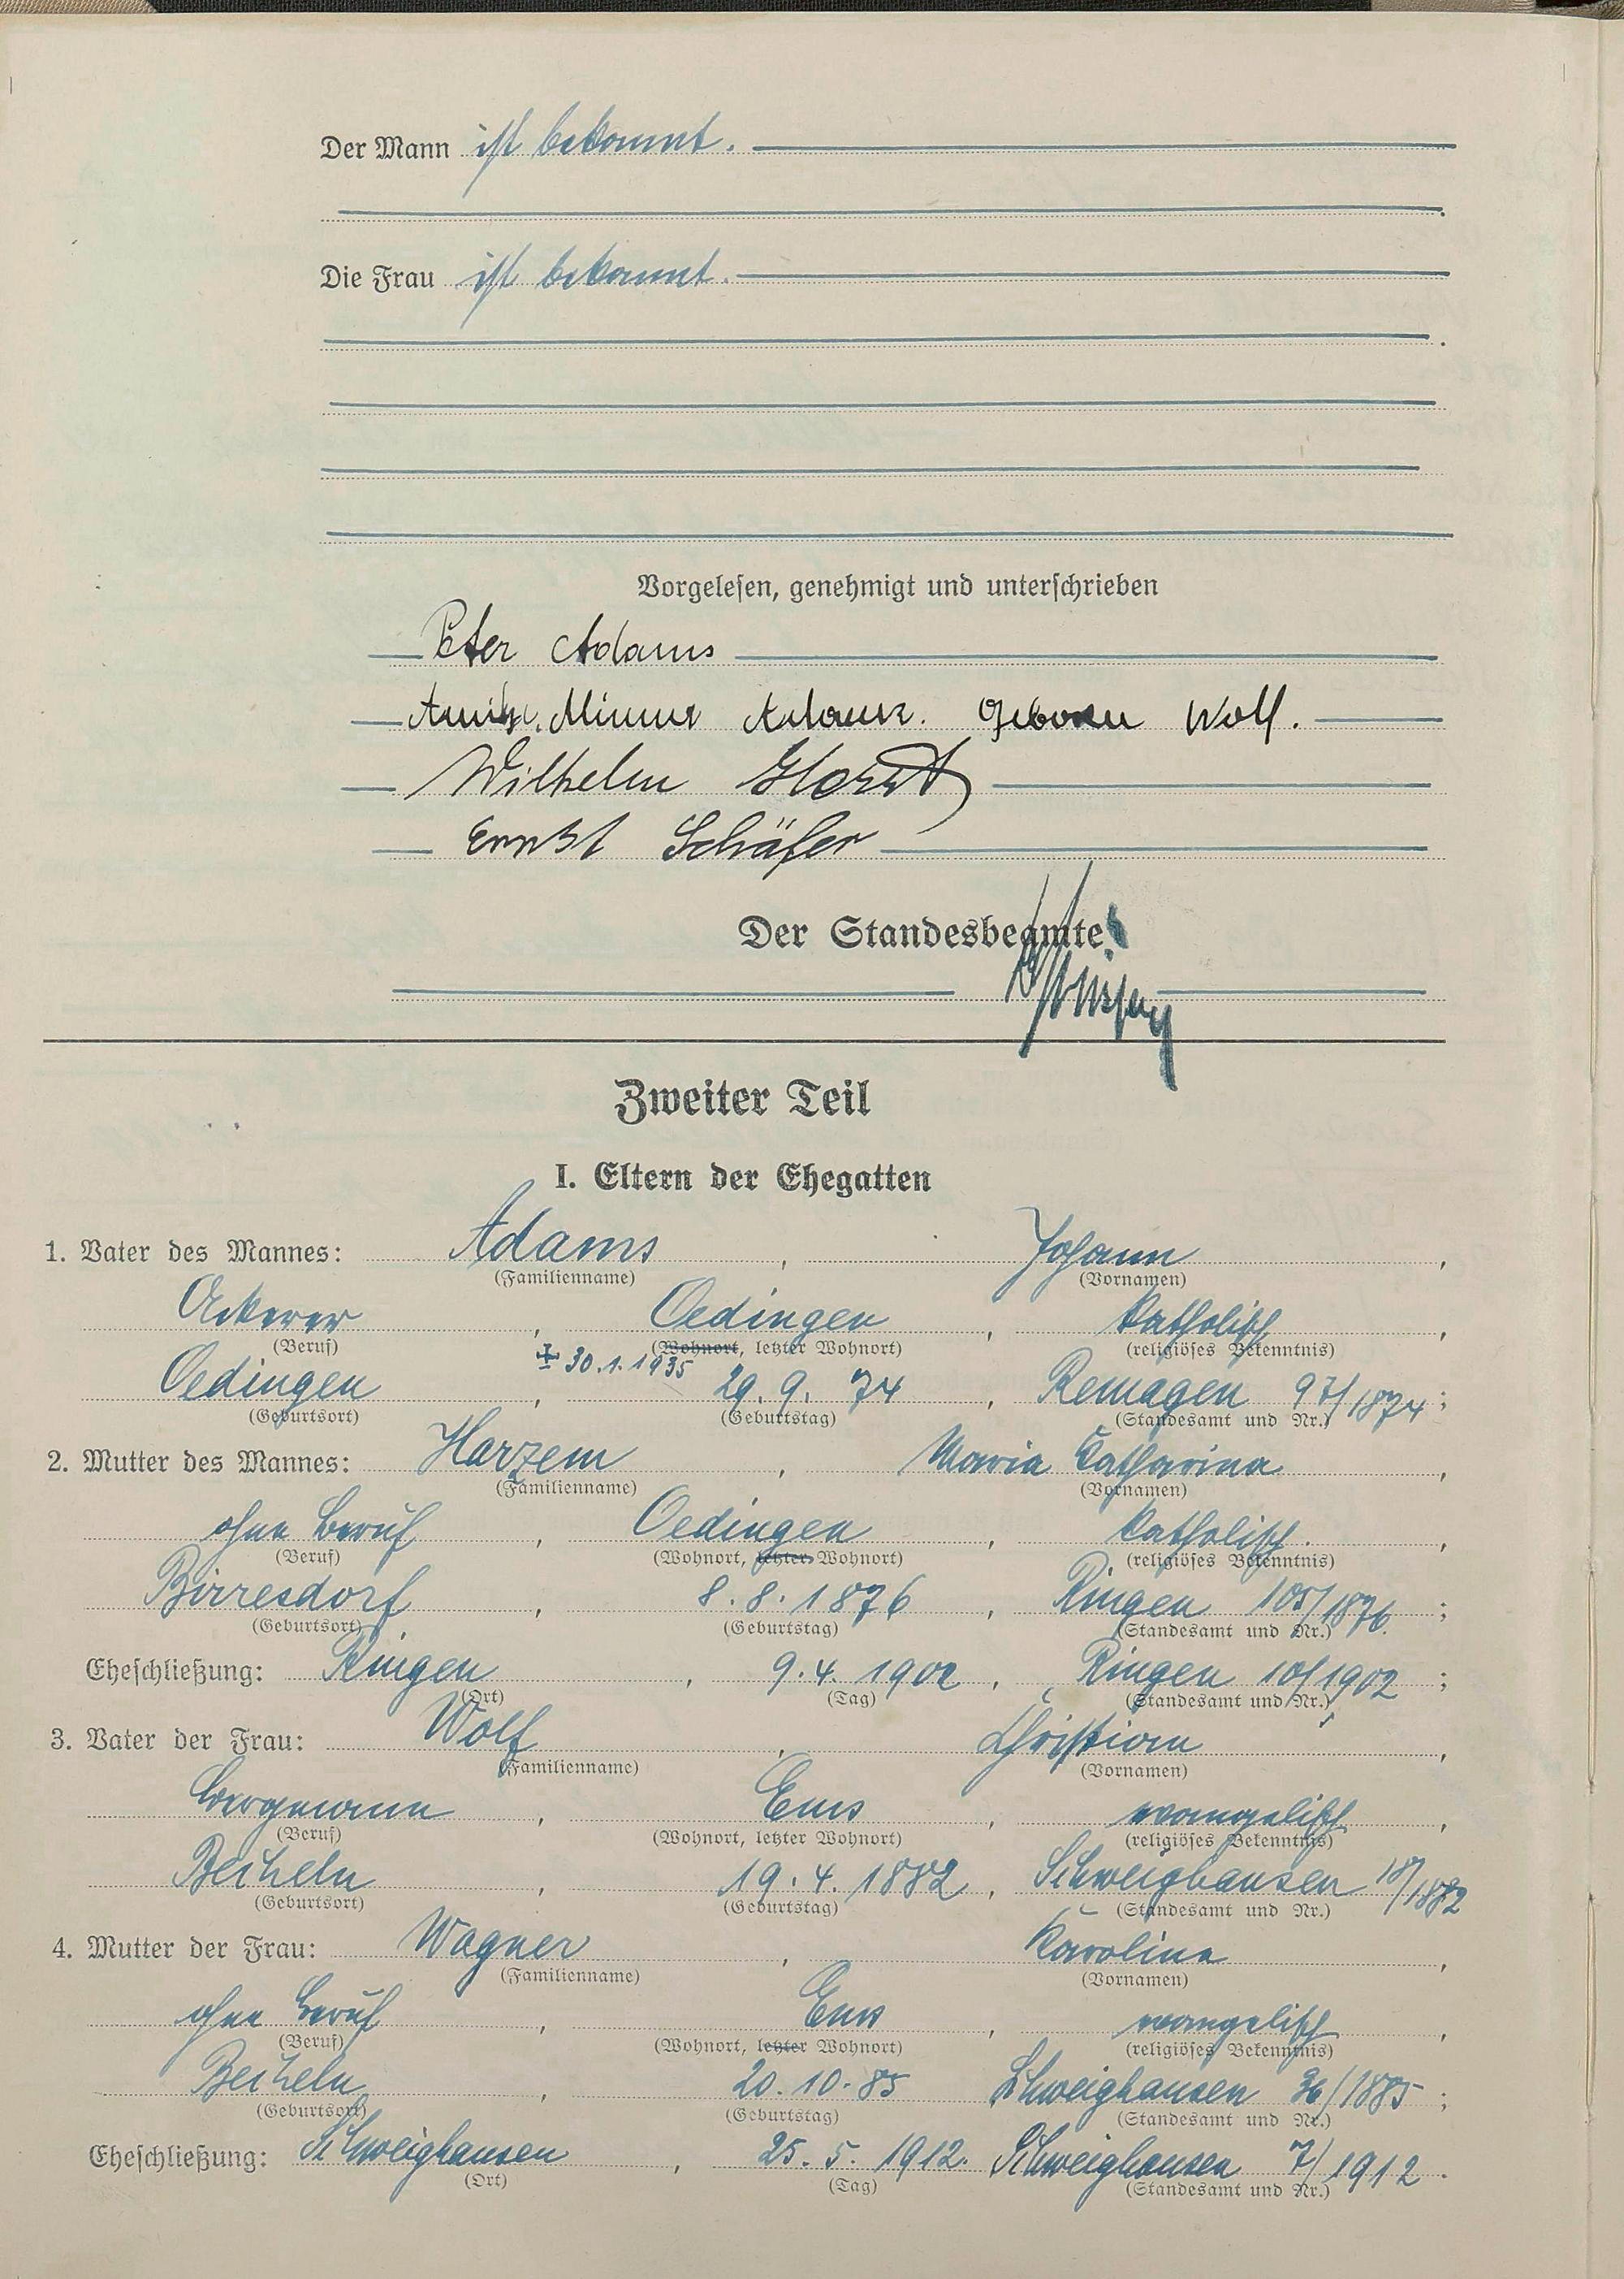 Der Mann ist bekannt.
Die Frau ist bekannt.
Vorgelesen, genehmigt und unterschrieben
Peter Adams
Minna Adams. Geboren Wolf.
Wilhelm Horst
Ernst Schäfer
Der Standesbeamte
Zweiter Teil
I. Eltern der Ehegatten
1. Vater des Mannes: Adams, Johann,
(Familienname) (Vornamen)
Ackerer, Oedingen, katholisch,
(Beruf) (Wohnort, letzter Wohnort) (religiöses Bekenntnis)
+ 30.1.1935
Oedingen, 29.9.74, Remagen 97/1874;
(Geburtsort) (Geburtstag) (Standesamt und Nr.)
2. Mutter des Mannes: Harzem, Maria Katharina,
(Familienname) (Vornamen)
ohne Beruf, Oedingen, katholisch.,
(Beruf) (Wohnort, letzter Wohnort) (religiöses Bekenntnis)
Birresdorf, 8.8.1876, Ringen 105/1876.;
(Geburtsort) (Geburtstag) (Standesamt und Nr.)
Eheschließung: Ringen, 9.4.1902, Ringen 10/1902;
(Ort) (Tag) (Standesamt und Nr.)
3. Vater der Frau: Wolf, Christian,
(Familienname) (Vornamen)
Bergmann, Ems, evangelisch,
(Beruf) (Wohnort, letzter Wohnort) (religiöses Bekenntnis)
Becheln, 19.4.1882, Schweighausen 18/1882
(Geburtsort) (Geburtstag) (Standesamt und Nr.)
4. Mutter der Frau: Wagner, Karoline,
(Familienname) (Vornamen)
ohne Beruf, Ems, evangelisch,
(Beruf) (Wohnort, letzter Wohnort) (religiöses Bekenntnis)
Becheln, 20.10.85 Schweighausen 36/1885;
(Geburtsort) (Geburtstag) (Standesamt und Nr.)
Eheschließung: Schweighausen, 25.5.1912. Schweighausen 7/1912.
(Ort) (Tag) (Standesamt und Nr.)